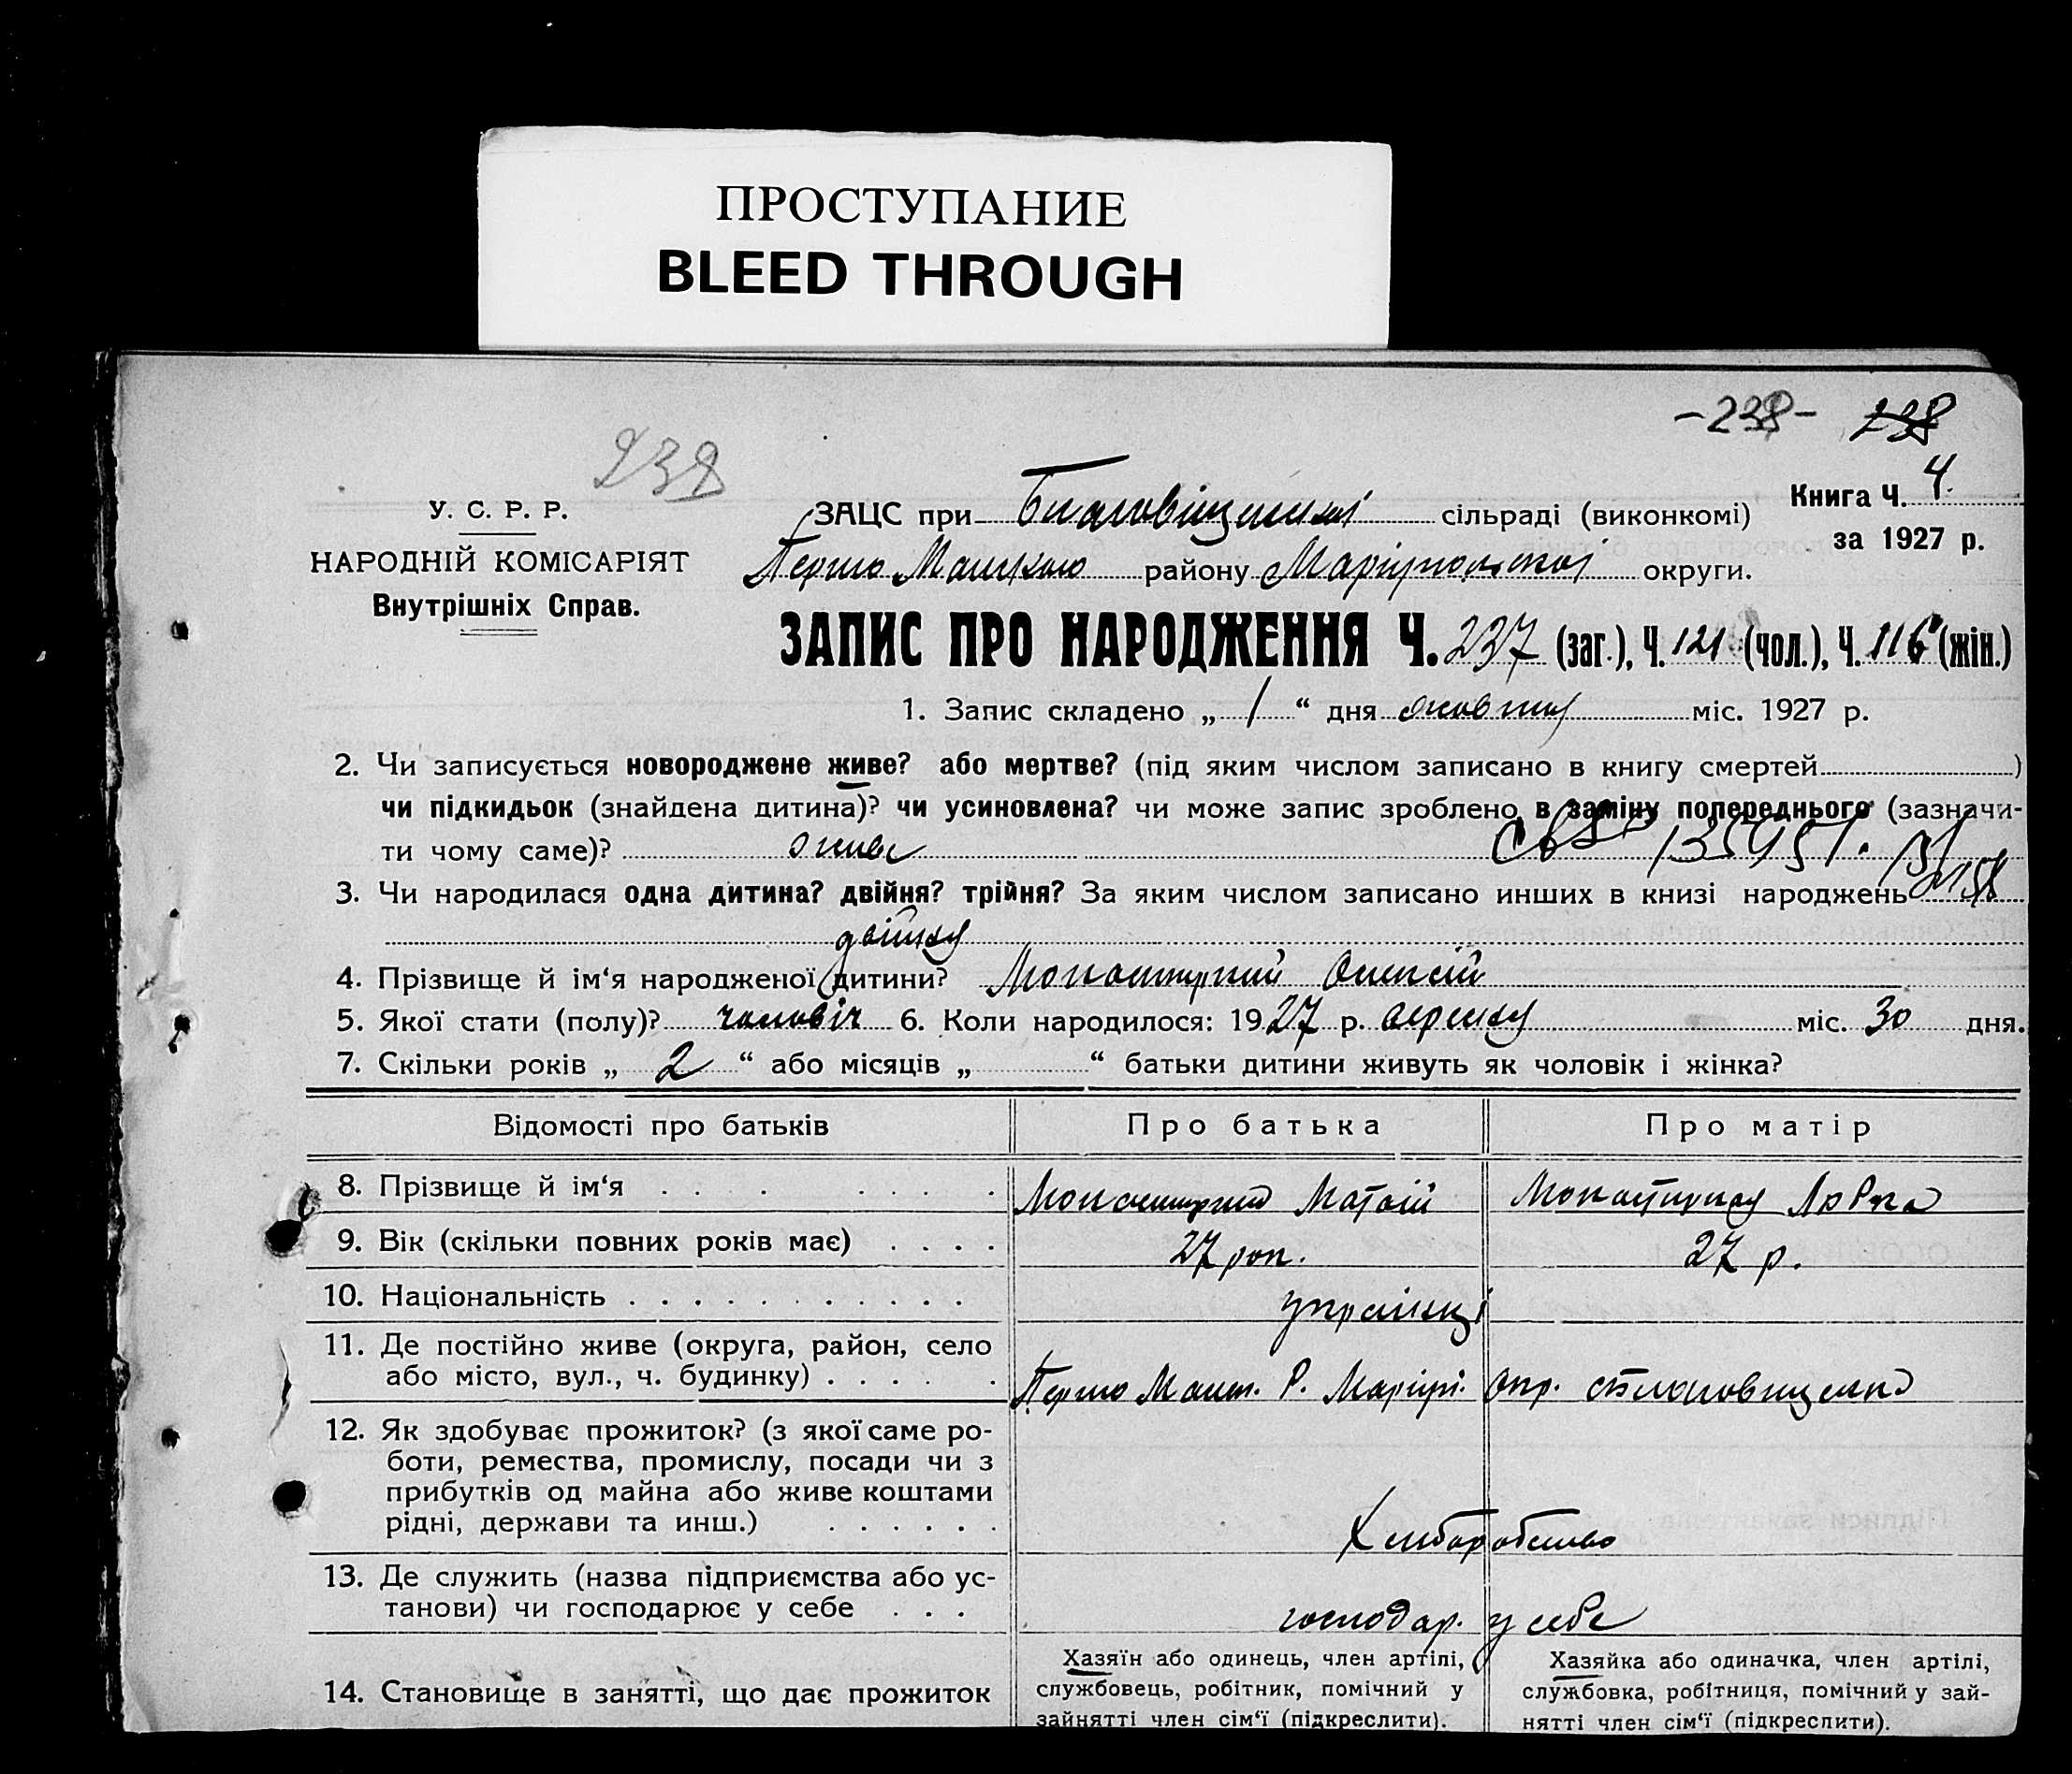 ПРОСТУПАНИЕ
BLEED THROUGH
-238- 238
238
Книга Ч. 4.
за 1927 р.
У. С. Р. Р.
НАРОДНІЙ КОМІСАРІЯТ
Внутрішніх Справ.
ЗАЦС при Благовіщенській сільраді (виконкомі)
Першо Манського району Маріупольської округи.
ЗАПИС ПРО НАРОДЖЕННЯ Ч. 237 (заг.), Ч. 121 (чол.), Ч. 116 (жін.)
1. Запис складено „ 1 “ дня жовтня міс. 1927 р.
2. Чи записується новороджене живе? або мертве? (під яким числом записано в книгу смертей )
чи підкидьок (знайдена дитина)? чи усиновлена? чи може запис зроблено в заміну попереднього (зазначи-
ти чому саме)? живе
3. Чи народилася одна дитина? двійня? трійня? За яким числом записано инших в книзі народжень
двійня
4. Прізвище й ім‘я народженої дитини? Монастирний Олексій
5. Якої стати (полу)? чоловіч 6. Коли народилося: 1927 р. вересня міс. 30 дня.
7. Скільки років „ 2 “ або місяців „ “ батьки дитини живуть як чоловік і жінка?
Відомості про батьків Про батька Про матір
8. Прізвище й ім‘я . . . . . . . . Монастирний Матвій Монастирная
9. Вік (скільки повних років має) . . . . 27 рок. 27 р.
10. Національність . . . . . . . . . . . українці
11. Де постійно живе (округа, район, село
або місто, вул., ч. будинку) . . . . . Першо Манс. Р. Маріуп. Окр.
12. Як здобуває прожиток? (з якої саме ро-
боти, ремества, промислу, посади чи з
прибутків од майна або живе коштами
рідні, держави та инш.) . . . . . . Хліборобство
13. Де служить (назва підприємства або ус-
танови) чи господарює у себе . . . господар. у себе
14. Становище в занятті, що дає прожиток
Хазяїн або одинець, член артілі,
службовець, робітник, помічний у
зайнятті член сім‘ї (підкреслити).
Хазяйка або одиначка, член артілі,
службовка, робітниця, помічний у зай-
нятті член сім‘ї (підкреслити).